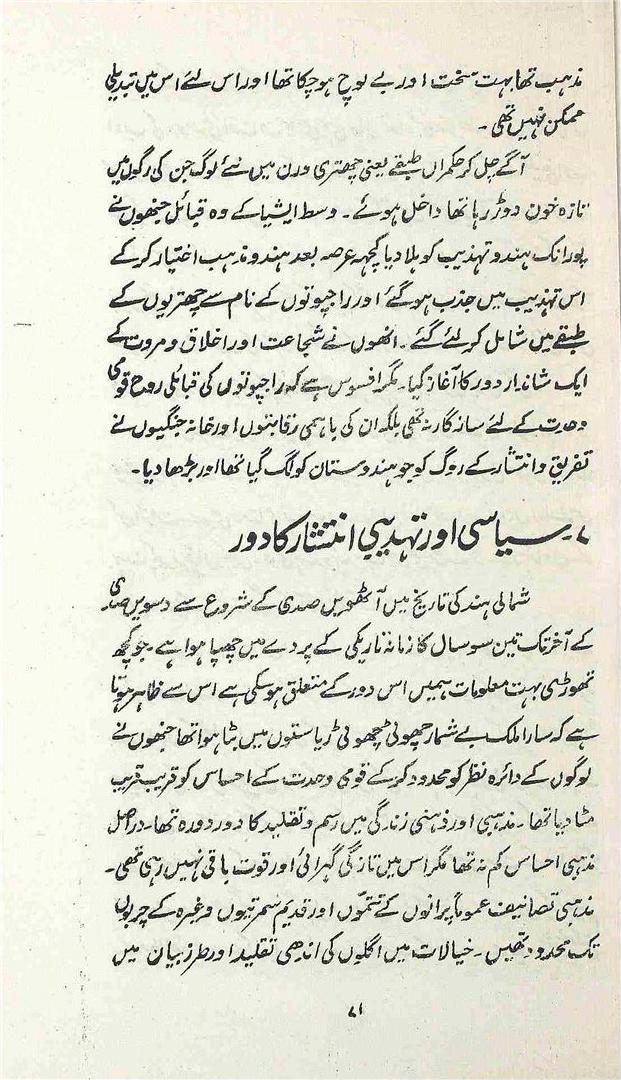 مذہب تھا بہت سخت اور بے لوچ ہوچکا تھا اور اس لئے اس میں تبدیلی
ممکن نہیں تھی ۔
آگے چل کر حکمراں طبقے یعنی چھتری ورن میں نئے لوگ جن کی رگوں میں
تازہ خون دوڑ رہا تھا داخل ہوئے ۔ وسط ایشیا کے وہ قبائل جنھوں نے
پورانک ہندو تہذیب کو ہلا دیا کچھ عرصہ بعد ہندو مذہب اختیار کر کے
اس تہذیب میں جذب ہو گئے اور راجپوتوں کے نام سے چھتریوں کے
طبقے میں شامل کر لئے گئے ۔ انھوں نے شجاعت اور اخلاق و مروت کے
ایک شاندار دور کا آغاز کیا ۔ مگر افسوس ہے کہ راجپوتوں کی قبائلی روح قومی
وحدت کے لئے سازگار نہ تھی بلکہ ان کی باہمی رقابتوں اور خانہ جنگیوں نے
تفریق و انتشار کے روگ کو جو ہندوستان کو لگ گیا تھا اور بڑھا دیا ۔
۷۔ سیاسی اور تہذیبی انتشار کا دور
شمالی ہند کی تاریخ میں آٹھویں صدی کے شروع سے دسویں صدی
کے آخر تک تین سو سال کا زمانہ تاریکی کے پردے میں چھپا ہوا ہے ۔ جو کچھ
تھوڑی بہت معلومات ہمیں اس دور کے متعلق ہو سکی ہے اس سے ظاہر ہوتا
ہے کہ سارا ملک بے شمار چھوٹی چھوٹی ریاستوں میں بٹا ہوا تھا جنھوں نے
لوگوں کے دائرہ نظر کو محدود کر کے قومی وحدت کے احساس کو قریب قریب
مٹا دیا تھا ۔ مذہبی اور ذہنی زندگی میں رسم و تقلید کا دور دورہ تھا ۔ دراصل
مذہبی احساس کم نہ تھا مگر اس میں تازگی گہرائی اور قوت باقی نہیں رہی تھی ۔
مذہبی تصانیف عموماً پرانوں کے تتموں اور قدیم سمرتیوں وغیرہ کے چربوں
تک محدود تھیں ۔ خیالات میں اگلوں کی اندھی تقلید اور طرز بیان میں
۷۱